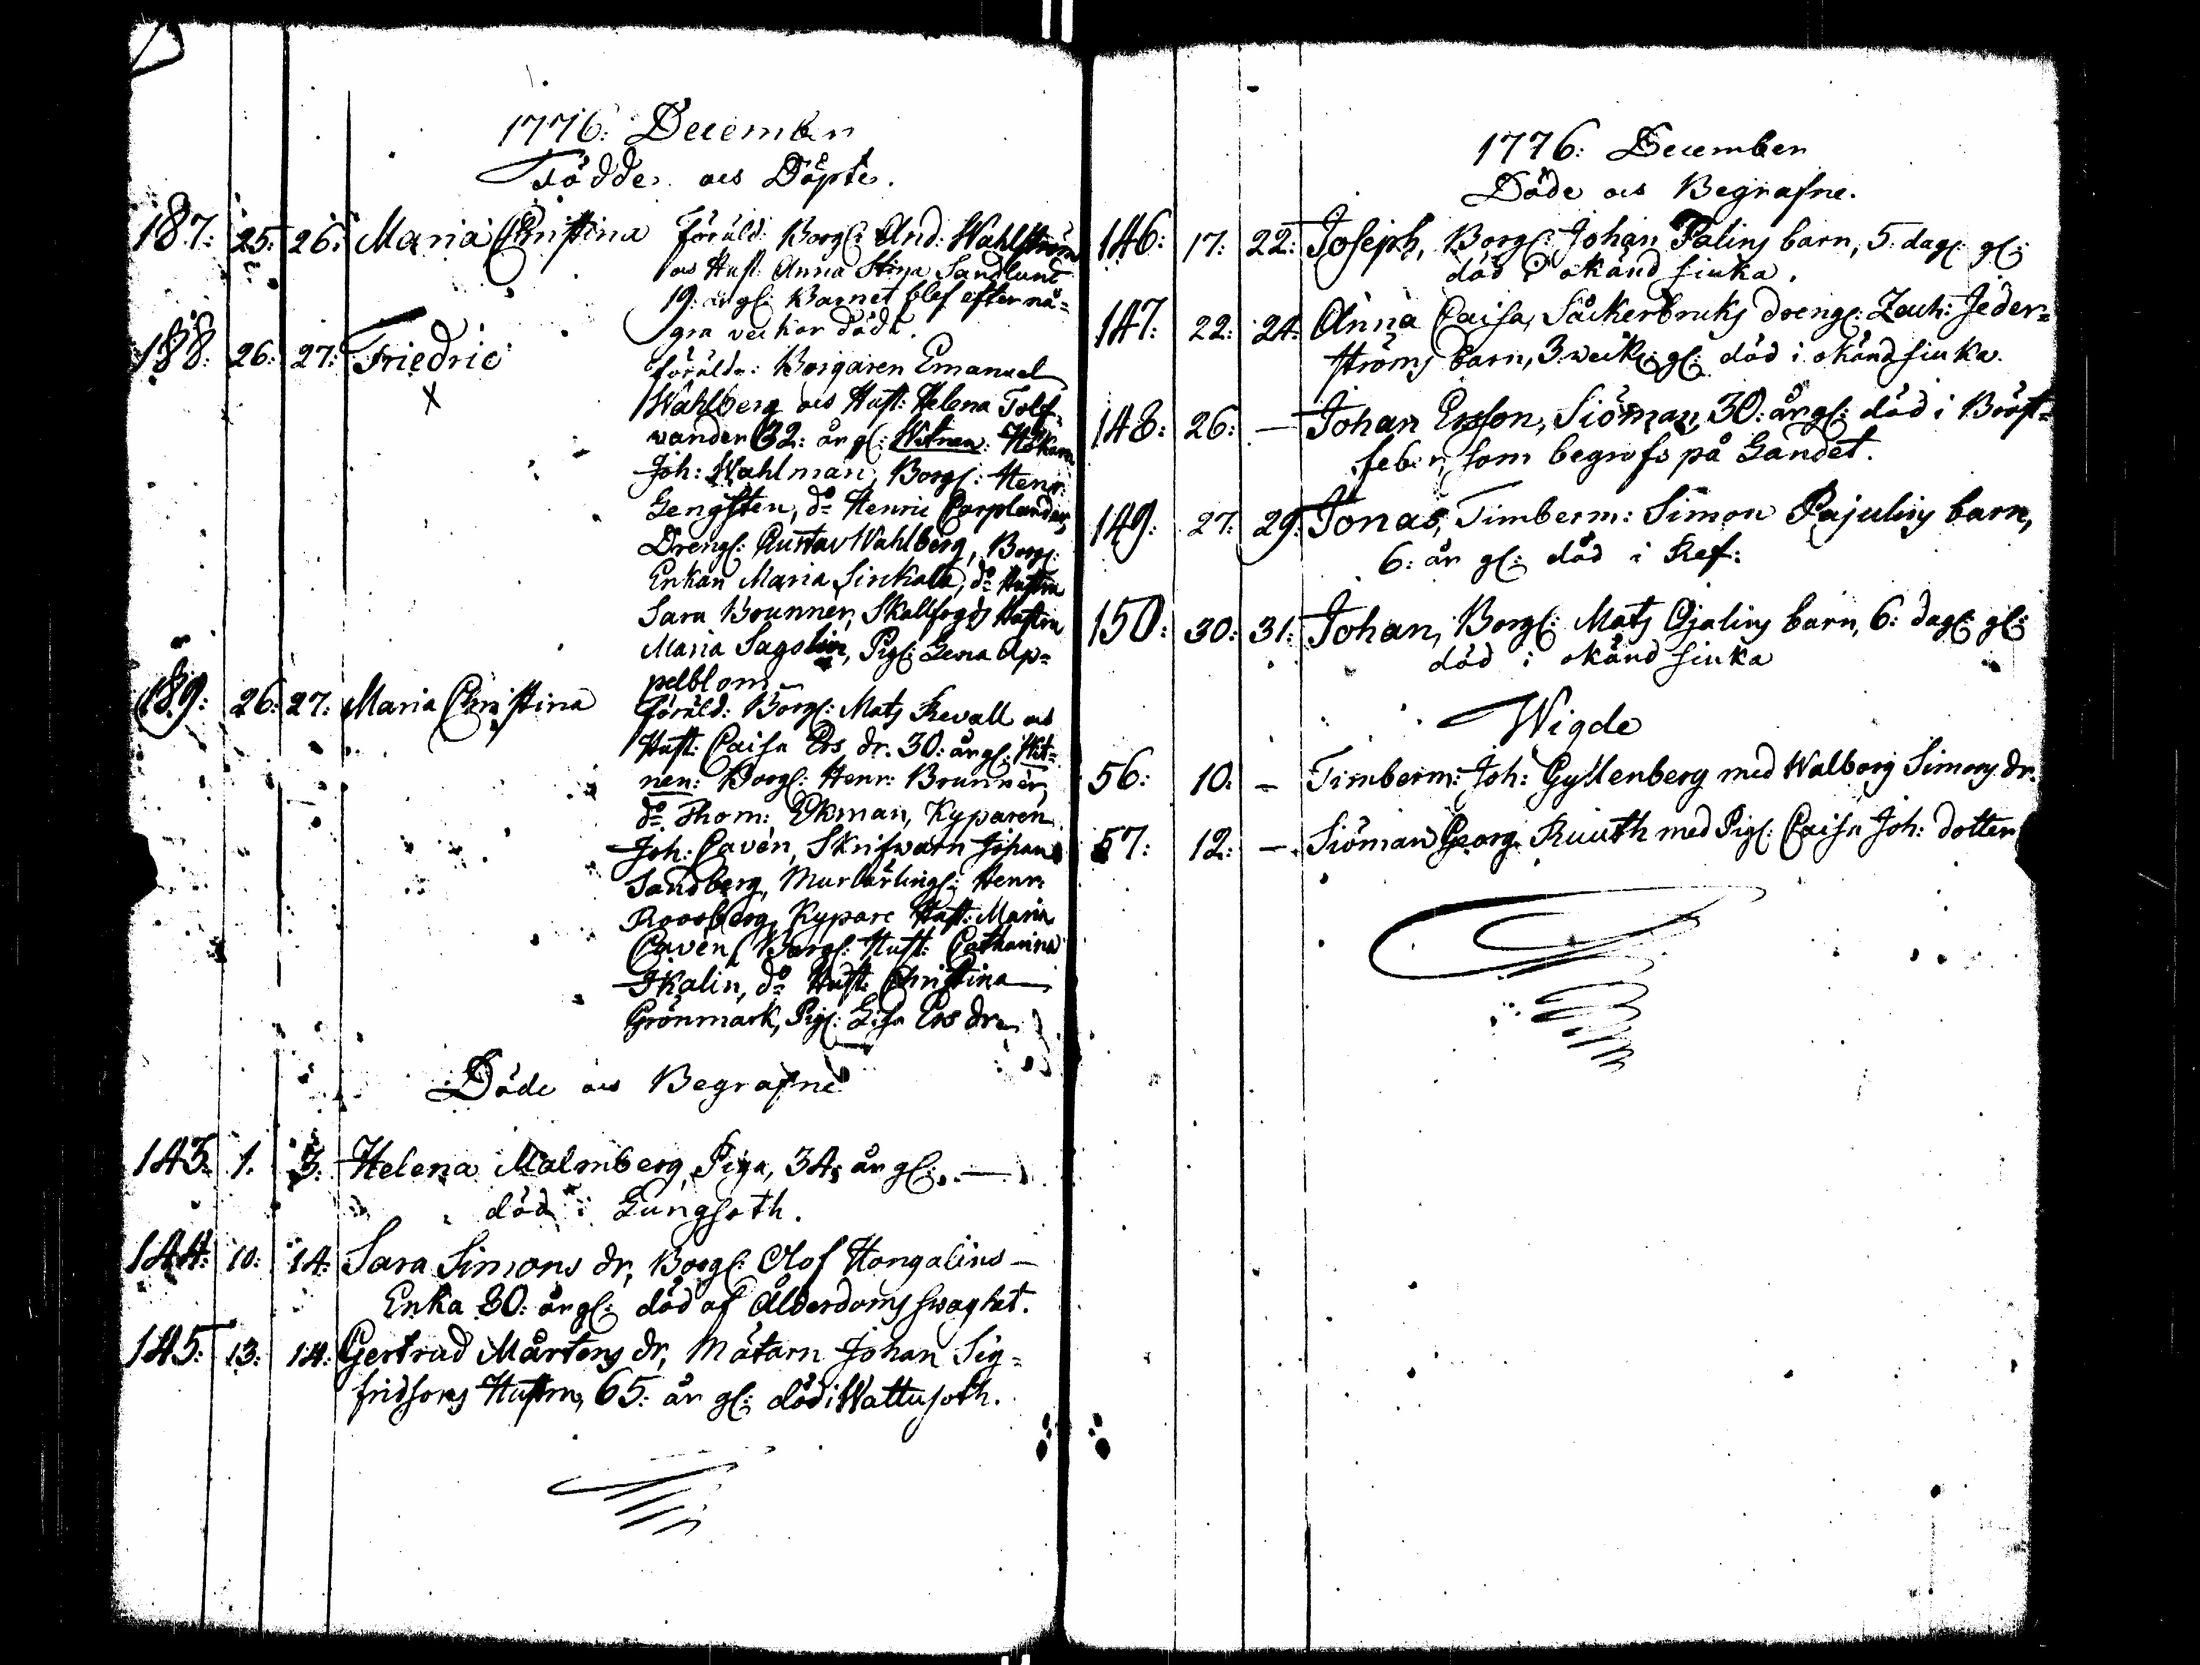 1776: December
Födde och Döpte.
187: 25: 26: Maria Christina Föräld: Borg: And: Wahlström
och Hust: Anna Stina Sandlund
19: år gl: Barnet blef efter nå=
gra veckor dödt.
188: 26: 27: Friedric
X
föräldr: Borgaren Emanuel
Wahlberg och Hust: Helena Tolf
wander 32: år gl: Witnen: Hökarn
Joh: Wahlman, Borg: Henr:
Gengsten, do Henric Carplander,
Dreng: Gustav Wahlberg, Borg:
Enkan Maria Sinkala, do Hustru
Sara Brunner, Skallfogds Hustru
Maria Sagolin, Pig: Lena Ap=
pelblom
189: 26: 27: Maria Christina föräld: Borg: Mats Revall och
Hust: Caisa Ers dr. 30: år gl: Wit=
nen: Borg: Henr: Brunner,
do Thom: Ekman, Kyparen
Joh: Cavén, Skrifwarn Johan
Sandberg, Murlärling: Henr:
Roosberg, Kypare Hust: Maria
Cavén, Borg: Hust: Catharina
Ikalin, do Hust: Christina
Grönmark, Pig: Lisa Ers dr.
Döde och Begrafne
143. 1. 3. Helena Malmberg, Piga, 34 år gl: —
död i Lungsoth.
144: 10: 14: Sara Simons dr, Borg: Olof Hongalins —
Enka 80: år gl: död af Ålderdoms swaghet.
145: 13: 14: Gertrud Mårtens dr, Mätarn Johan Sig=
fridsons Hustru, 65: år gl: död i Wattusoth.
1776: December
Döde och Begrafne.
146: 17: 22: Joseph, Borg: Johan Palins barn, 5: dag: gl:
död i okänd siuka.
147: 22: 24: Anna Caisa, Såckerbruks dreng: Zach: Jeder=
ströms barn, 3 weck: gl: död i okänd siuka.
148: 26: — Johan Ersson, Siöman, 30: år gl: död i Bröst=
feber, som begrofs på Landet.
149: 27: 29: Jonas, Timberm: Simon Pajulins barn,
6: år gl: död i Ref:
150: 30: 31: Johan, Borg: Mats Ojalins barn, 6: dag: gl:
död i okänd siuka
Wigde
56: 10: — Timberm: Joh: Gyllenberg med Walborg Simons dr.
57: 12: — Siöman Georg Ruuth med Pig: Caisa Joh: dotter